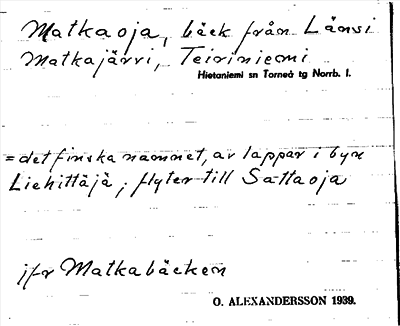 Matkaoja, bäck från Länsi
Matkajärvi, Teiriniemi
Hietaniemi sn Torneå tg Norrb. l.
= det finska namnet, av lappar i byn
Liehittäjä; flyter till Sattaoja
jfr Matkabäcken
O. ALEXANDERSSON 1939.